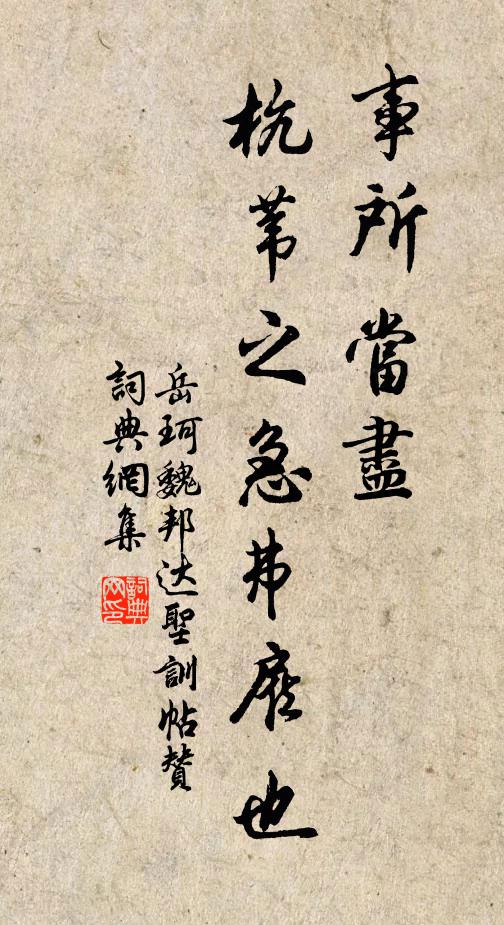 事所當盡
杭苇之急弗也
岳珂魏邦达聖訓帖贊
詞典網集
詞典
网印